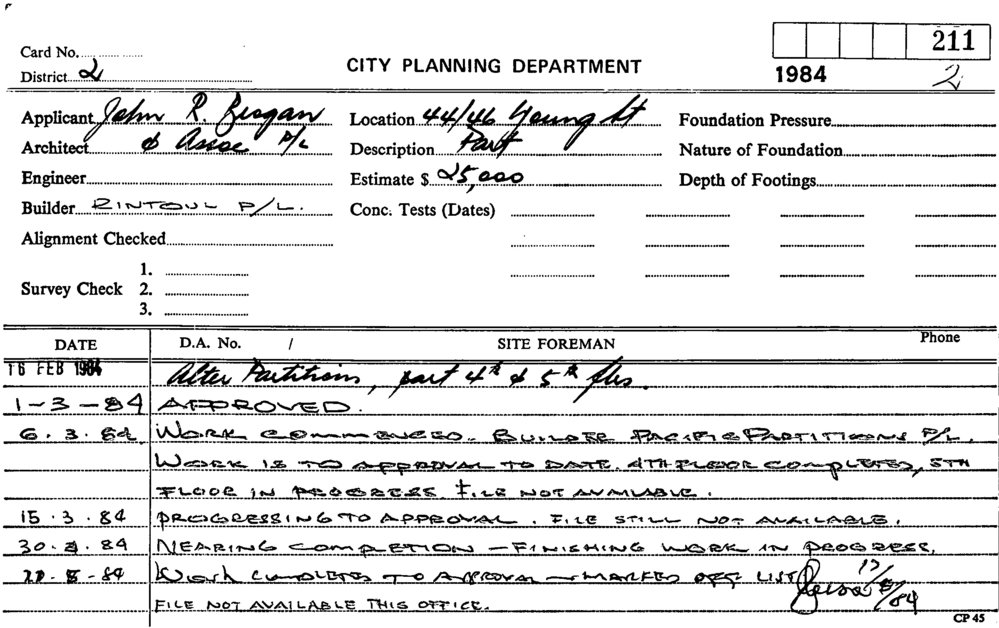 Card No.
211
District 2
CITY PLANNING DEPARTMENT
1984
2
Applicant John R. Brogan
Location 44/46 Young St
Foundation Pressure
Architect & Assoc P/L
Description Part
Nature of Foundation
Engineer
Estimate $ 25,000
Depth of Footings
Builder RINTOUL P/L.
Conc. Tests (Dates)
Alignment Checked
1.
Survey Check 2.
3.
DATE D.A. No. / SITE FOREMAN Phone
16 FEB 1984 Alter Partitions, part 4th & 5th flrs.
1-3-84 APPROVED.
6.3.84. WORK COMMENCED. BUILDER PACIFIC PARTITIONS P/L.
WORK IS TO APPROVAL TO DATE. 4TH FLOOR COMPLETED, 5TH
FLOOR IN PROGRESS. FILE NOT AVAILABLE.
15.3.84 PROGRESSING TO APPROVAL. FILE STILL NOT AVAILABLE.
84 NEARING COMPLETION - FINISHING WORK IN PROGRESS.
84 WORK COMPLETED TO APPROVAL - MARKED OFF LIST
FILE NOT AVAILABLE THIS OFFICE.
CP 45